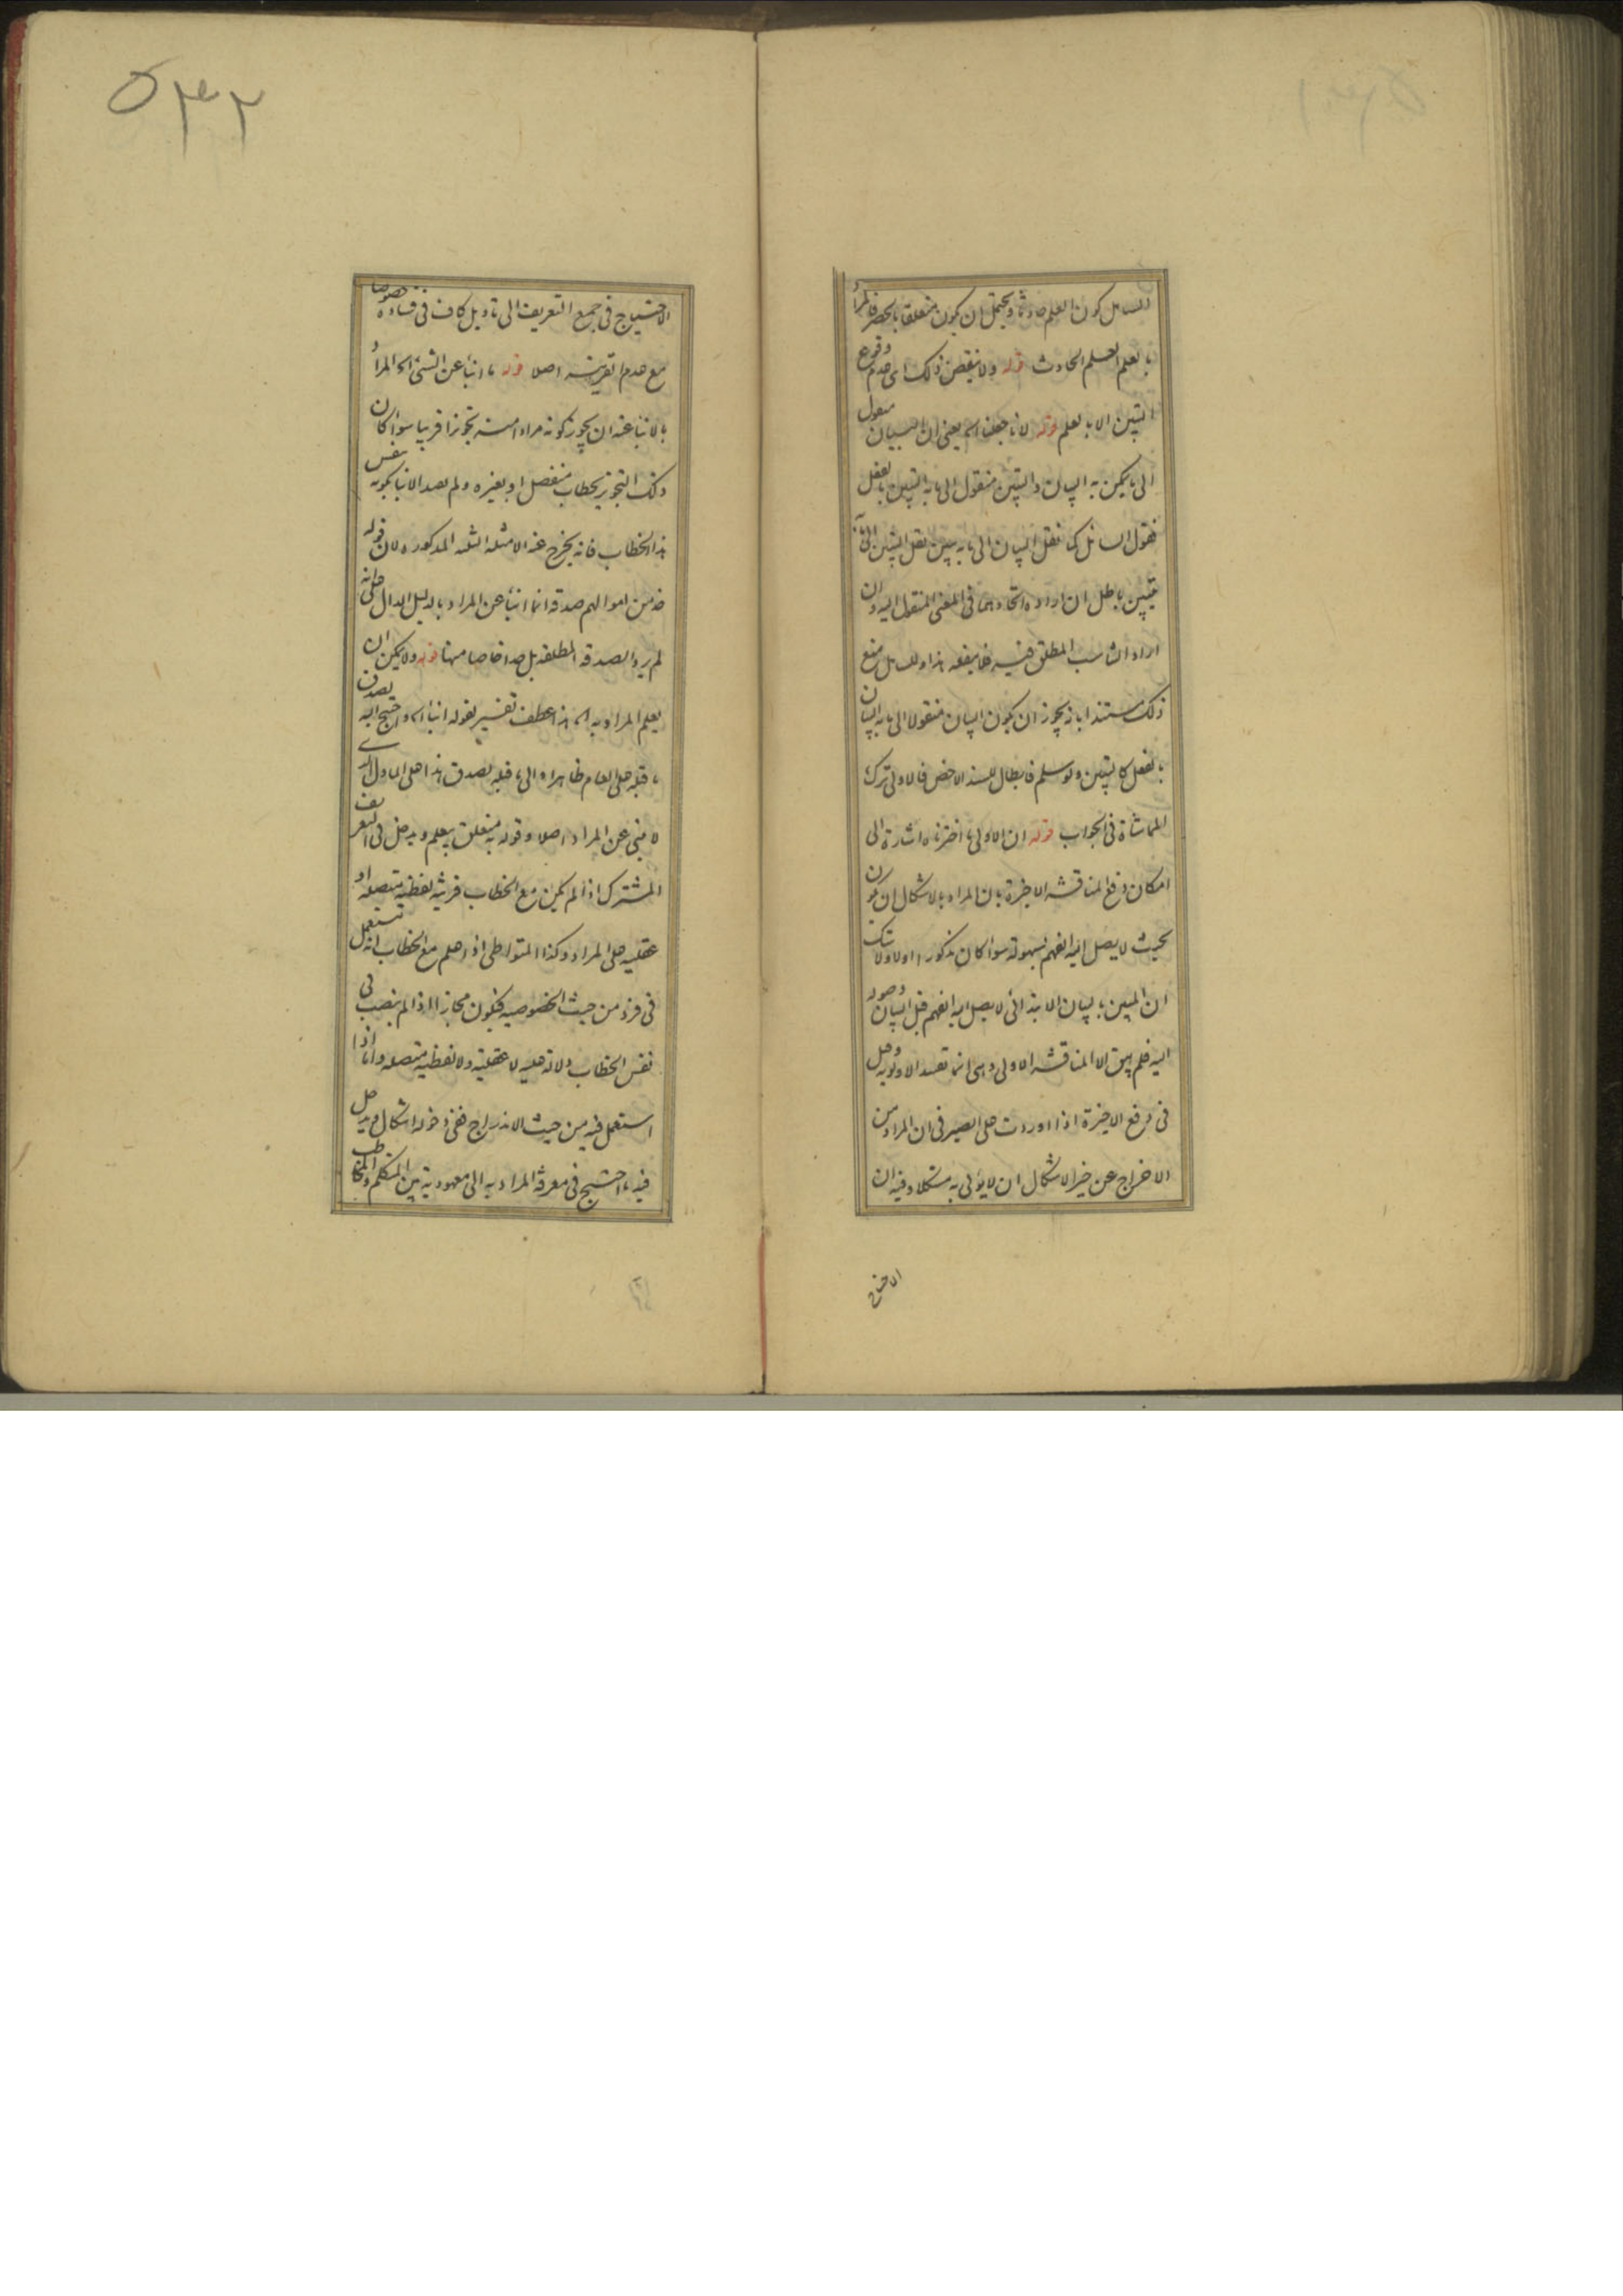 السائل كون العلم حادثا ويحتمل ان يكون متعلقا بالحصر فالمراد
بالعلم العلم الحادث قوله ولا ينقص ذلك اى عدم وقوع
التبين الا بالعلم قوله لانا جعلنا اه يعنى ان البيان منقول
الى ما يمكن به البيان والتبين منقول الى ما به التبين بالفعل
فقول السائل كما نقل البيان الى ما به يتبين نقل التبين الى ما به
يتبين باطل ان اراد اتحادهما فى المعنى المنقول اليه وان
اراد التناسب المطلق فيه هذا وللسائل منع
ذلك مستندا بانه يجوز ان يكون البيان منقولا الى ما به البيان
بالفعل كالتبين ولو سلم فابطال للسند الاخص فالاولى ترك
المماشاة فى الجواب قوله ان الاولى ما اخترناه اشارة الى
امكان دفع المناقشة الاخيرة بان المراد بالاشكال ان يكون
بحيث لا يصل اليه الفهم بسهولة سوا كان مذكورا اولا ولا شك
ان المبين بالبيان الابتدائى لا يصل اليه الفهم قبل البيان وصوله
اليه فلم يبق الا المناقشة الاولى وهى انما تفسد الاولوية ولعل
فى دفع الاخيرة اذا اوردت على الصيرفى ان المراد من
الاخراج عن حيز الاشكال ان لا يؤتى به مشكلا وفيه ان
الاحتياج
۵۳۲
الاحتياج فى جميع التعريف الى تاويل كاف فى فساده خصوصا
مع عدم القرينة اصلا قوله ما انبأ عن الشئ اه المراد
بالانبا عنه ان يجوز كونه مرادا منه تجوزا قريبا سوا كان
ذلك التجويز بخطاب منفصل او بغيره ولم يصد الانبا بكونه بنفس
هذا الخطاب فانه يخرج عنه الامثلة الثلثة المذكوره لان قوله
خذ من اموالهم صدقة انما انبأ عن المراد بالدليل الدال على انه
لم يرد الصدقة المطلقة بل خاصا منها قوله ولا يمكن ان
يعلم المراد به اه هذا عطف تفسير لقوله انبا اه واحتيج اليه
ما قبله على العام ظاهرا الى ما قبله يصدق هذا على الماول الذى
لا ينبى عن المراد اصلا وقوله به متعلق بيعلم ويدخل فى التعريف
المشترك اذا لم يكن مع الخطاب قرينة لفظية متصلة او
عقلية على المراد وكذا المتواطى اذا علم مع الخطاب انه استعمل
فى فرد من حيث الخصوصية فيكون مجازا اذا لم ينصب فى
نفس الخطاب دلالة عليه لا عقلية ولا لفظية متصلة واما اذا
استعمل فيه من حيث الاندراج ففى دخوله اشكال ويدخل
فيه ما احتيج فى معرفة المراد به الى معهودية بين المتكلم والمخاطب